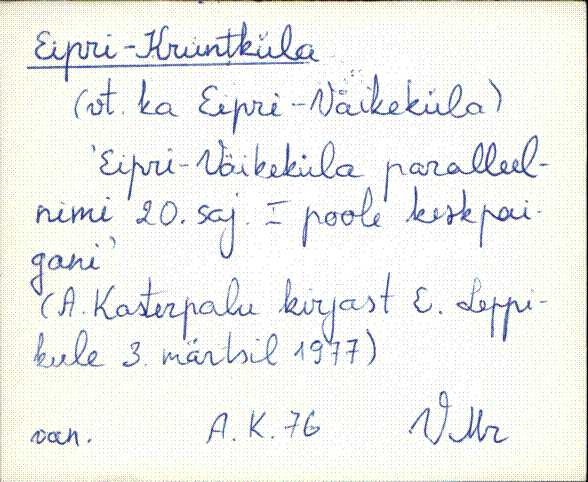 Eipri-Kruntküla
(vt. ka Eipri-Väikeküla)
'Eipri-Väikeküla paralleel-
nimi 20. saj. I poole keskpai-
gani'
(A. Kasterpalu kirjast E. Leppi-
kule 3. märtsil 1977)
van. A. K. 76 VMr